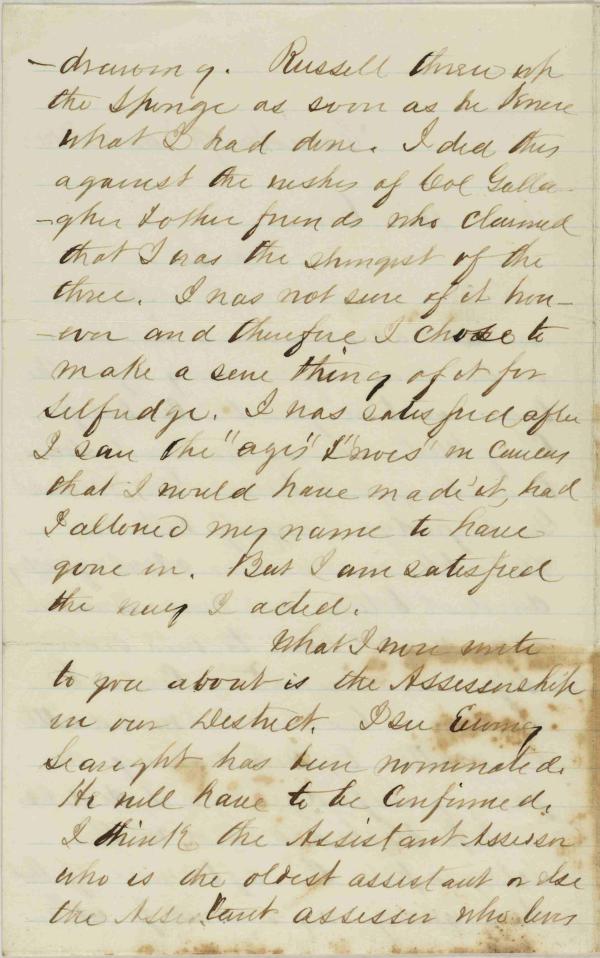 -drawing. Russell threw up
the sponge as soon as he knew
what I had done. I did this
against the wishes of Col Galla-
-gher & other friends who claimed
that I was the strongest of the
three. I was not sure of it how-
-ever and therefore I chose to
make a sure thing of it for
Selfridge. I was satisfied after
I saw the "ayes" & "noes" in Caucus
that I would have made it, had
I allowed my name to have
gone in. But I am satisfied
the way I acted.
What I now write
to you about is the Assessorship
in our District. I see Ewing
Searight has been nominated.
He will have to be Confirmed.
I think the Assistant Assessor
who is the oldest assistant or else
the Assistant assessor who lives